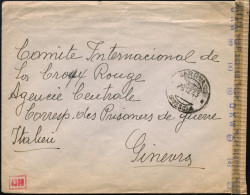 Comite Internacional de
La Croix Rouge
Agencie Centrale
Corresp. des Prisones de guerre
Italieu
Ginevra